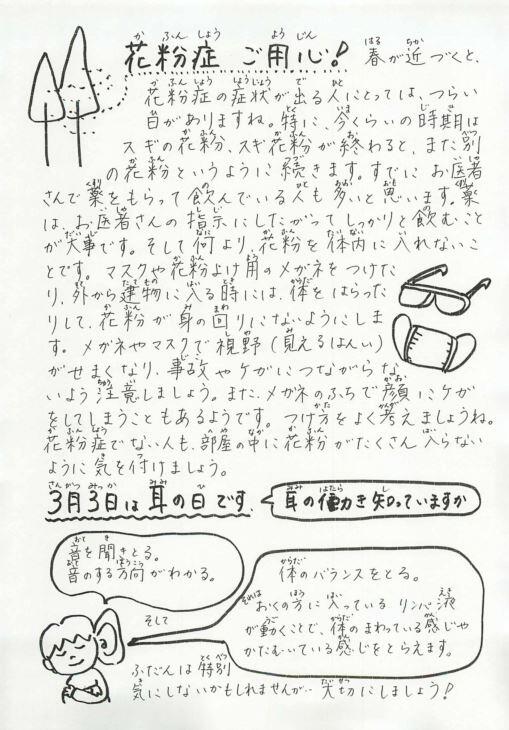 花粉症 ご用心! 春が近づくと、
花粉症の症状が出る人にとっては、つらい
日がありますね。特に、今くらいの時期は
スギの花粉、スギ花粉が終わると、また別
の花粉というように続きます。すでに お医者
さんで薬をもらって飲んでいる人も多いと思います。薬
は、お医者さんの指示にしたがってしっかりと飲むこと
が大事です。そして何より、花粉を体内に入れないこ
とです。マスクや花粉よけ用のメガネをつけた
り、外から建物に入る時には、体をはらった
りして、花粉が身の回りにないようにしま
す。メガネやマスクで視野(見えるはんい)
がせまくなり、事故やケガにつながらな
いよう注意しましょう。また、メガネのふちで顔にケガ
をしてしまうこともあるようです。つけ方をよく考えましょうね。
花粉症でない人も、部屋の中に花粉がたくさん入らない
ように気を付けましょう。
3月3日は耳の日です。 耳の働き知っていますか
音を聞きとる。
音のする方向がわかる。
そして
体のバランスをとる。
それは
おくの方に入っているリンパ液
が動くことで、体のまわっている感じや
かたむいている感じをとらえます。
ふだんは特別
気にしないかもしれませんが… 大切にしましょう!